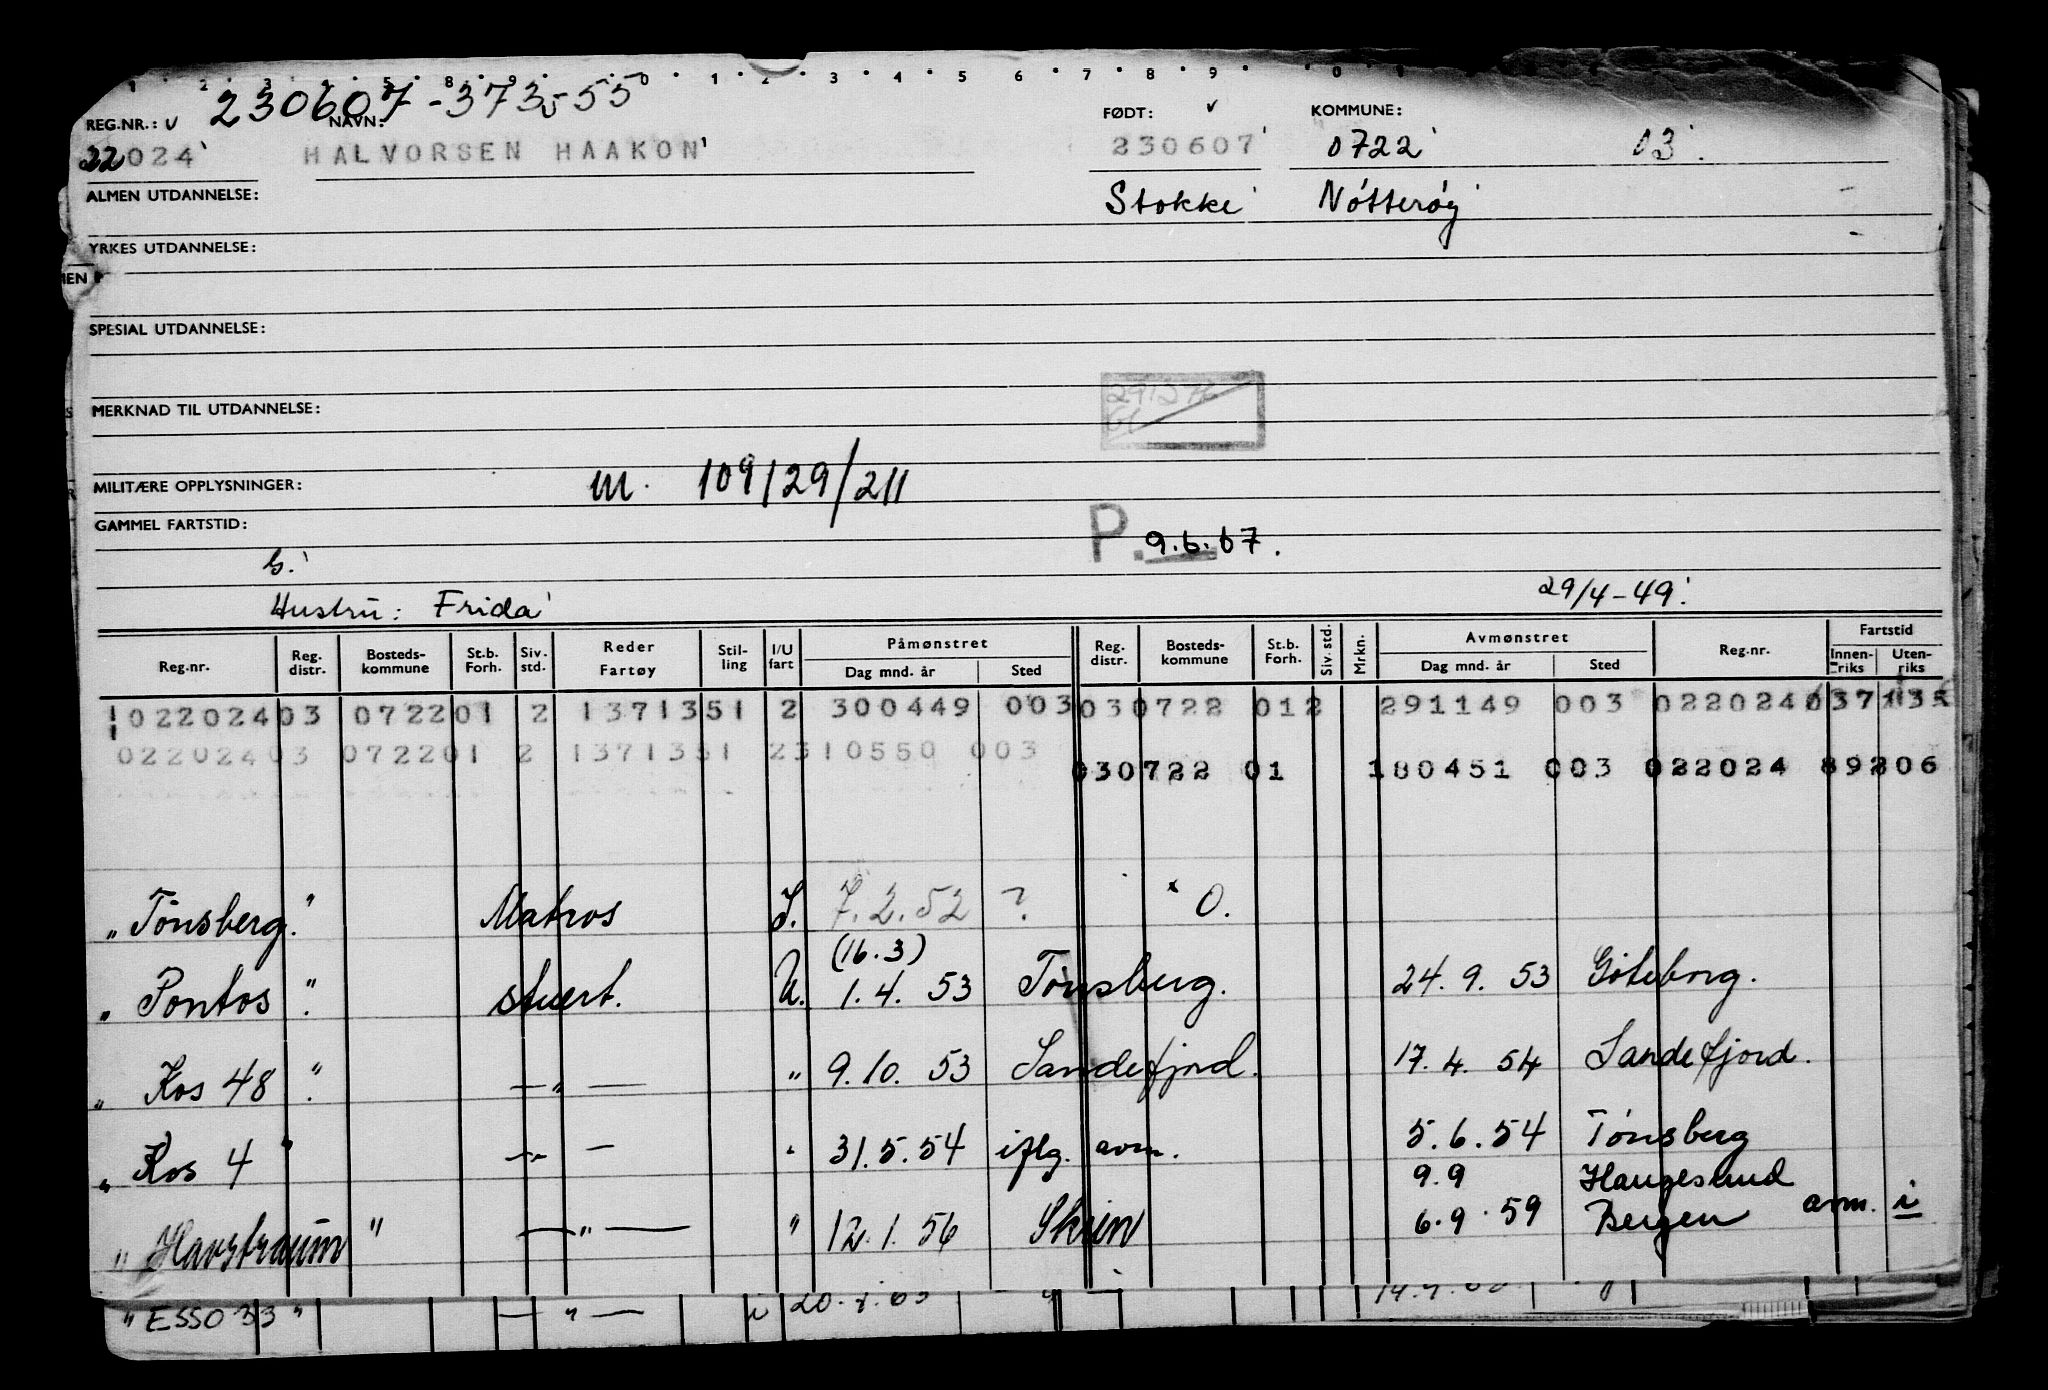 230607-373-55
REG.NR.: NAVN: FØDT: KOMMUNE:
22024 HALVORSEN HAAKON 230607 0722 03.
ALMEN UTDANNELSE: Stokke Nötteröy
YRKES UTDANNELSE:
SPESIAL UTDANNELSE:
MERKNAD TIL UTDANNELSE:
MILITÆRE OPPLYSNINGER: M. 109/29/211
GAMMEL FARTSTID: P. 9.6.67.
G.
Hustru: Frida 29/4-49.
Reg.nr. Reg. distr. Bosteds-kommune St.b. Forh. Siv. std. Reder Fartøy Stil-ling I/U fart Påmønstret Dag mnd. år Sted Reg. distr. Bosteds-kommune St.b. Forh. Siv. std. Mrkn. Avmønstret Dag mnd. år Sted Reg.nr. Fartstid Innen-riks Uten-riks
022024 03 0722 01 2 1371351 2 300449 003 03 0722 012 291149 003 022024
022024 03 0722 01 2 1371351 2 310550 003
03 0722 01 180451 003 022024 206
" Tönsberg. " Matros 7.2.52 ? O.
(16.3)
" Pontos " stuert. U. 1.4.53 Tönsberg. 24.9.53 Göteborg.
" Kos 48 " — " — " 9.10.53 Sandefjord. 17.4.54 Sandefjord.
" Kos 4 " — " — " 31.5.54 iflg. avm. 5.6.54 Tönsberg
9.9 Haugesund
" Havstraum " — " — " 12.1.56 Skien 6.9.59 Bergen avm. i
" ESSO 33 " — " — i